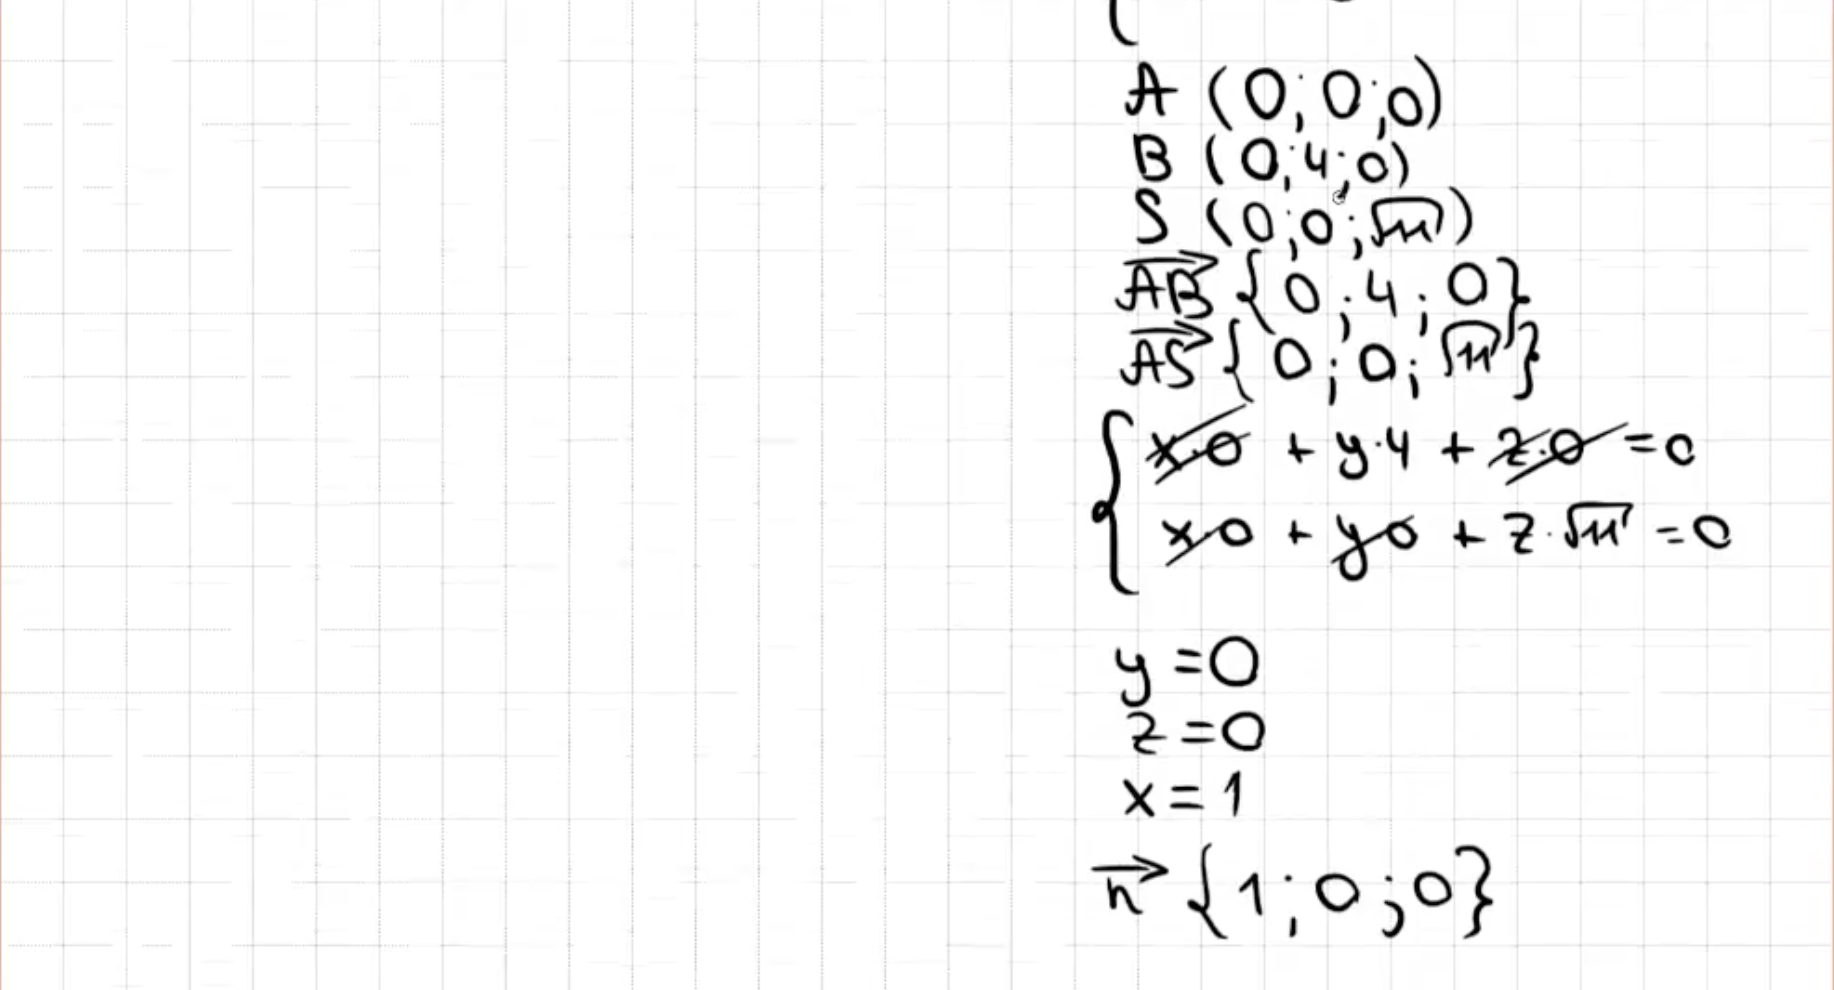 A (0; 0; 0)
B (0; 4; 0)
S (0; 0; √11)
AB {0; 4; 0}
AS {0; 0; √11}
x·0 + y·4 + z·0 = 0
x·0 + y·0 + z·√11 = 0
y = 0
z = 0
x = 1
n {1; 0; 0}